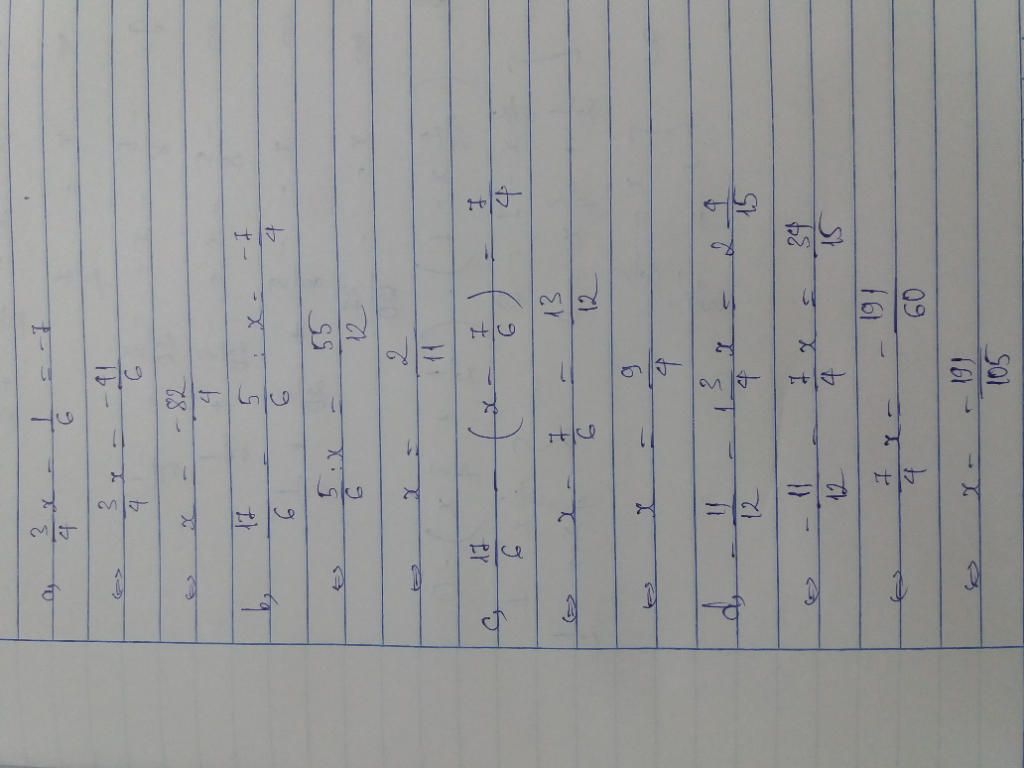 a, 3/4 x - 1/6 = -7
⇔ 3/4 x = -41/6
⇔ x = -82/9
b, 17/6 - 5/6 : x = -7/4
⇔ 5/6 : x = 55/12
⇔ x = 2/11
c, 17/6 - (x - 7/6) = 7/4
⇔ x - 7/6 = 13/12
⇔ x = 9/4
d, -11/12 - 1 3/4 x = 2 4/15
⇔ -11/12 - 7/4 x = 34/15
⇔ 7/4 x = -191/60
⇔ x = -191/105